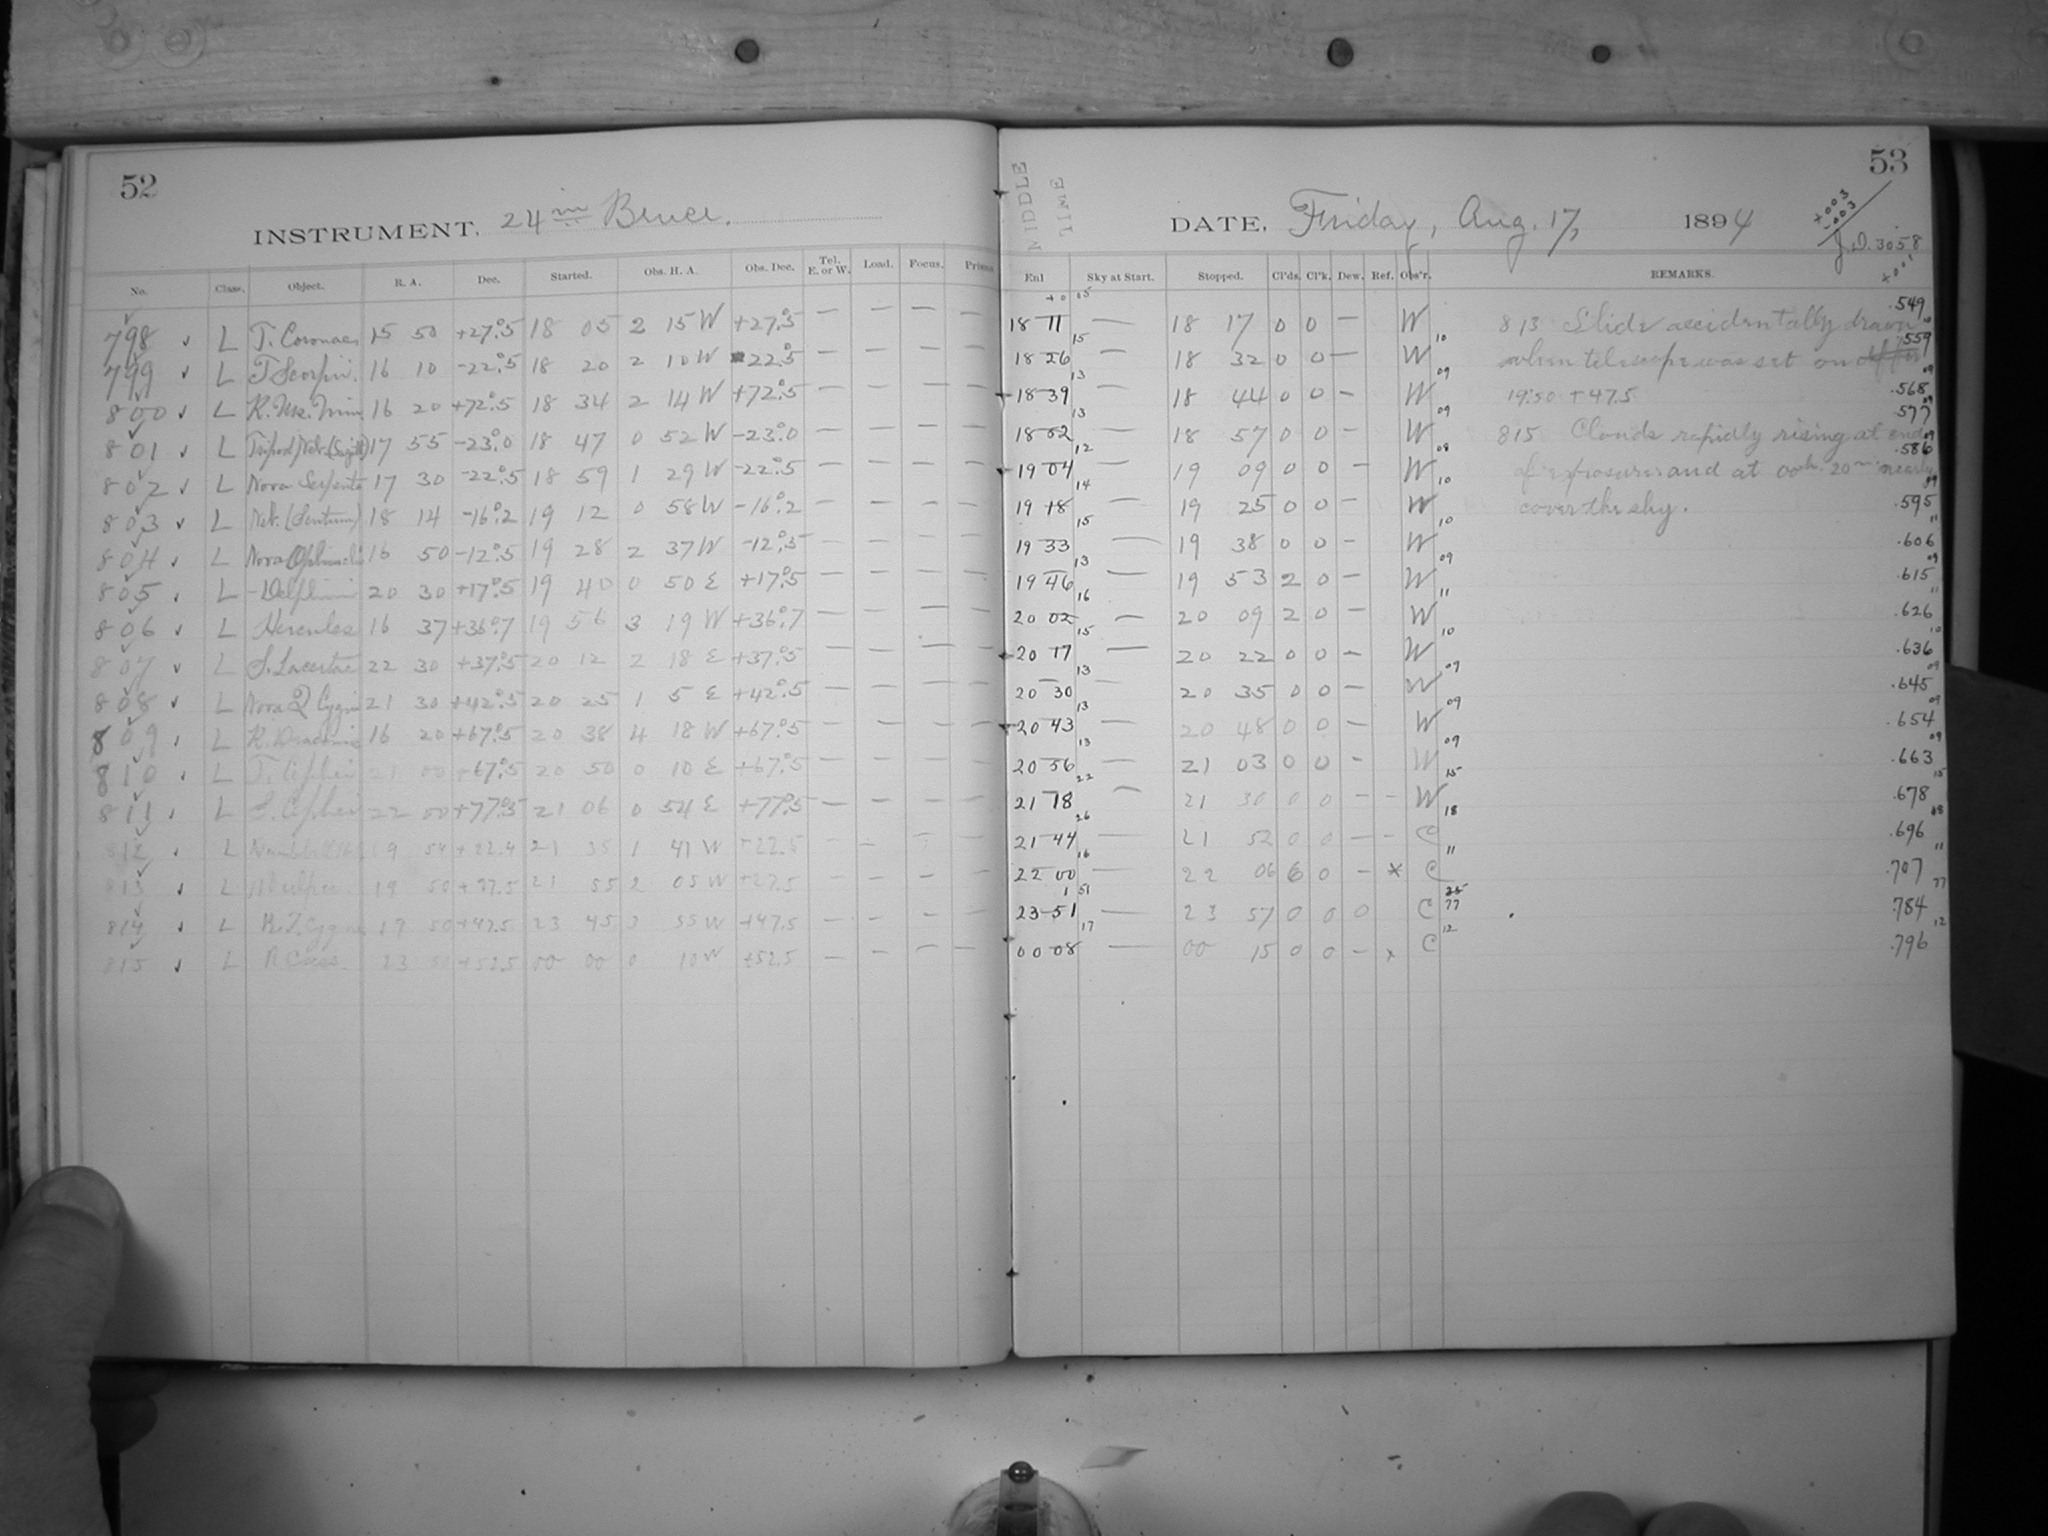 52
INSTRUMENT, 24 in Bruce.
No. Class. Object. R. A. Dec. Started. Obs. H. A. Obs. Dec. Tel. E. or W. Load. Focus. Prisms
798 ✓ L T. Coronae 15 50 +27°.5 18 05 2 15 W +27°.5 — — — —
799 ✓ L T Scorpii. 16 10 -22°.5 18 20 2 10 W -22°.5 — — — —
800 ✓ L R. Urs. Min 16 20 +72°.5 18 34 2 14 W +72°.5 — — — —
801 ✓ L 17 55 -23°.0 18 47 0 52 W -23°.0 — — — —
802 ✓ L Nova Serpentis 17 30 -22°.5 18 59 1 29 W -22°.5 — — — —
803 ✓ L Neb. 18 14 -16°.2 19 12 0 58 W -16°.2 — — — —
804 ✓ L Nova 16 50 -12°.5 19 28 2 37 W -12°.5 — — — —
805 L -Delphini 20 30 +17°.5 19 40 0 50 E +17°.5 — — — —
806 ✓ L Hercules 16 37 +36°.7 19 56 3 19 W +36°.7 — — — —
807 ✓ L S. Lacertae 22 30 +37°.5 20 12 2 18 E +37°.5 — — — —
808 ✓ L Nova Q Cygni 21 30 +42°.5 20 25 1 5 E +42°.5 — — — —
809 L R. Draconis 16 20 +67°.5 20 38 4 18 W +67°.5 — — — —
810 L T. Cephei 21 00 +67°.5 20 50 0 10 E +67°.5 — — — —
811 L S. Cephei 22 00 +77°.5 21 06 0 54 E +77°.5 — — — —
812 L 19 54 +22.4 21 35 1 41 W +22.5 — — — —
813 ✓ L 19 50 +27.5 21 55 2 05 W +27.5 — — — —
814 ✓ L 19 50 +47.5 23 45 3 55 W +47.5 — — — —
815 ✓ L R Cass. 23 50 +52.5 00 00 0 10 W +52.5 — — — —
53
MIDDLE
TIME
DATE, Friday, Aug. 17, 1894
+003
-003
J.D. 3058
+001
End Sky at Start. Stopped. Cl'ds. Cl'k. Dew. Ref. Obs'r. REMARKS.
18 11 — 18 17 0 0 — W 813 Slide accidentally drawn .549
18 26 — 18 32 0 0 — W when telescope was set on .559
18 39 — 18 44 0 0 — W 19:50 +47.5 .568
18 52 — 18 57 0 0 — W 815 Clouds rapidly rising at end .577
19 04 — 19 09 0 0 — W of exposure and at 00h. 20m. nearly .586
19 18 — 19 25 0 0 — W cover the sky. .595
19 33 — 19 38 0 0 — W .606
19 46 — 19 53 2 0 — W .615
20 02 — 20 09 2 0 — W .626
20 17 — 20 22 0 0 — W .636
20 30 — 20 35 0 0 — W .645
20 43 — 20 48 0 0 — W .654
20 56 — 21 03 0 0 — W .663
21 18 — 21 30 0 0 — — W .678
21 44 — 21 52 0 0 — — C .696
22 00 — 22 06 6 0 — x C .707
23 51 — 23 57 0 0 0 C .784
00 08 — 00 15 0 0 — x C .796